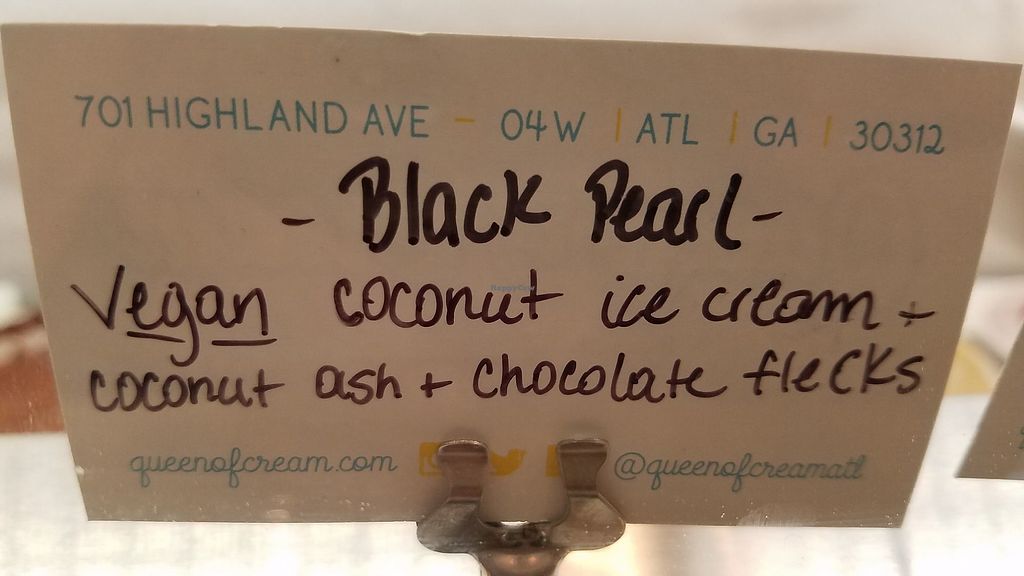 701 HIGHLAND AVE - 04W | ATL | GA | 30312
- Black Pearl -
Vegan coconut ice cream +
coconut ash + chocolate flecks
queenofcream.com @queenofcreamatl
HappyCow